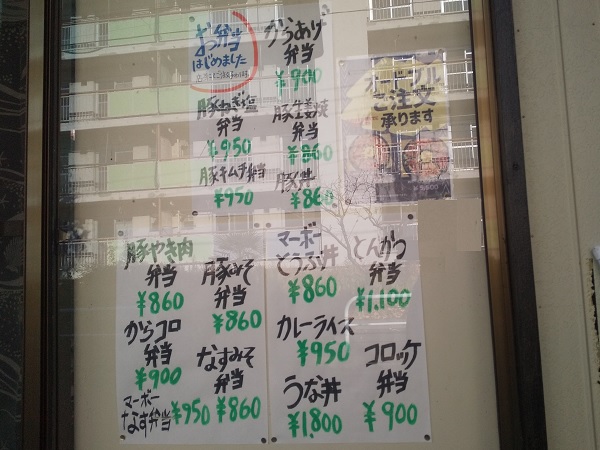 お弁当
はじめました
からあげ
弁当
¥900
豚ねぎ塩
弁当
¥950
豚生姜焼
弁当
¥860
豚キムチ弁当
¥950
豚丼
¥860
オードブル
ご注文
承ります
豚やき肉
弁当
¥860
豚みそ
弁当
¥860
からコロ
弁当
¥900
なすみそ
弁当
¥860
マーボー
なす弁当
¥950
マーボー
とうふ丼
¥860
とんかつ
弁当
¥1,100
カレーライス
¥950
コロッケ
弁当
¥900
うな丼
¥1,800